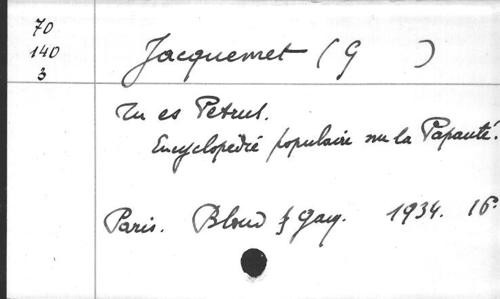 70
140
3
Jacquemet (G )
Tu es Petrus.
Encyclopédie populaire sur la Papauté.
Paris. Bloud & Gay. 1934. 16°